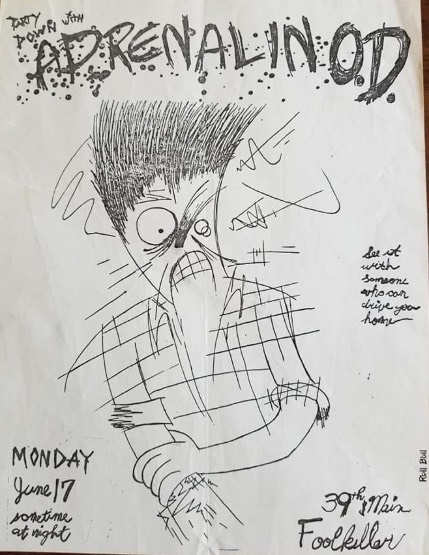 DIRTY
DOWN WITH
ADRENALIN O.D.
See it
with
someone
who can
drive you
home
MONDAY
June 17
sometime
at night
39th & Main
Foolkiller